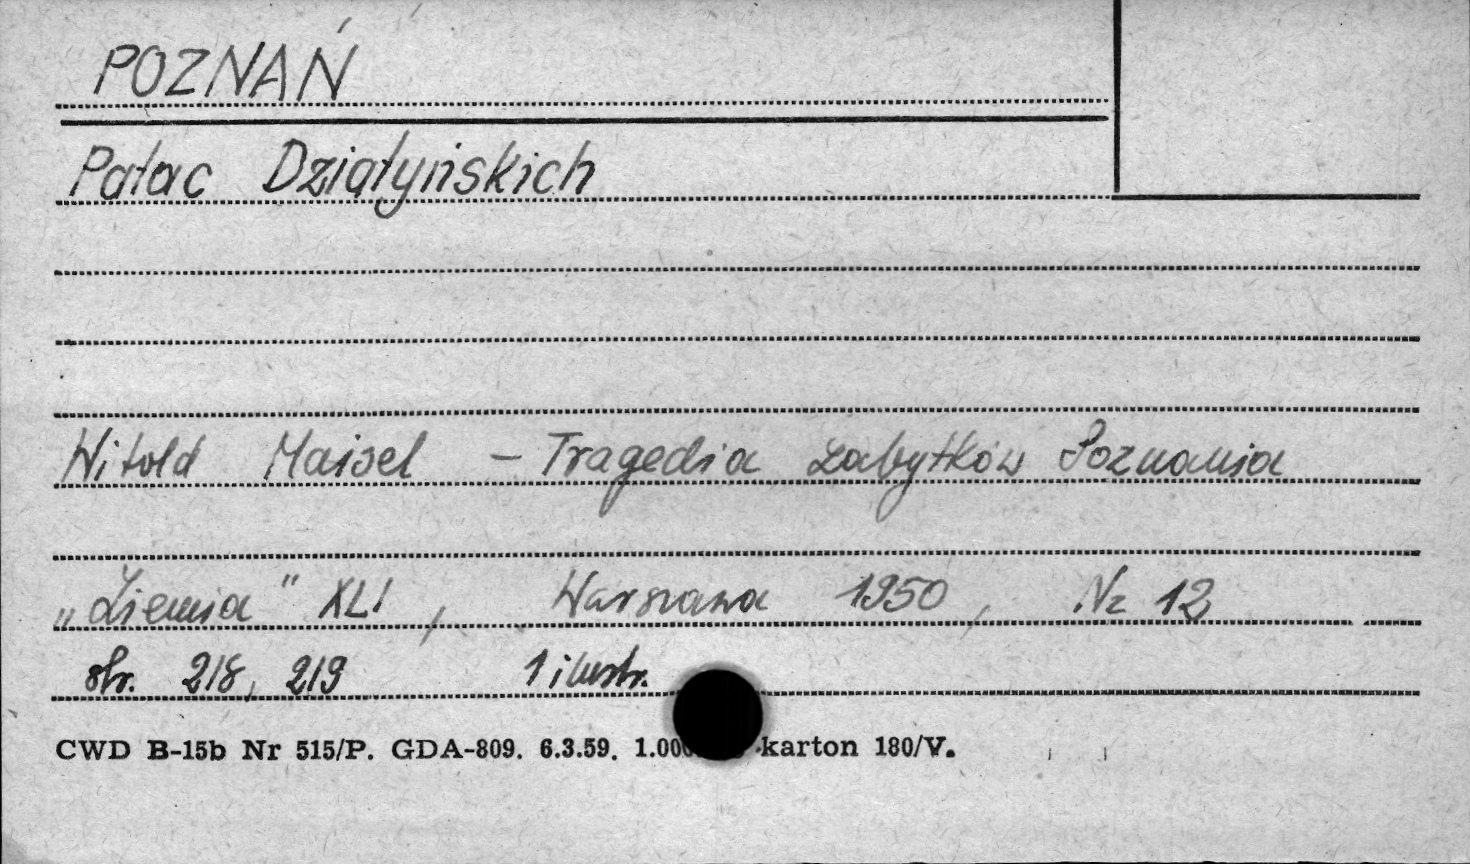 POZNAŃ
Pałac Działyńskich
Witold Maisel – Tragedia zabytków Poznania
„Ziemia" XLI, Warszawa 1950, Nr 12
str. 218, 219 1 ilustr.
CWD B-15b Nr 515/P. GDA-809. 6.3.59. karton 180/V.